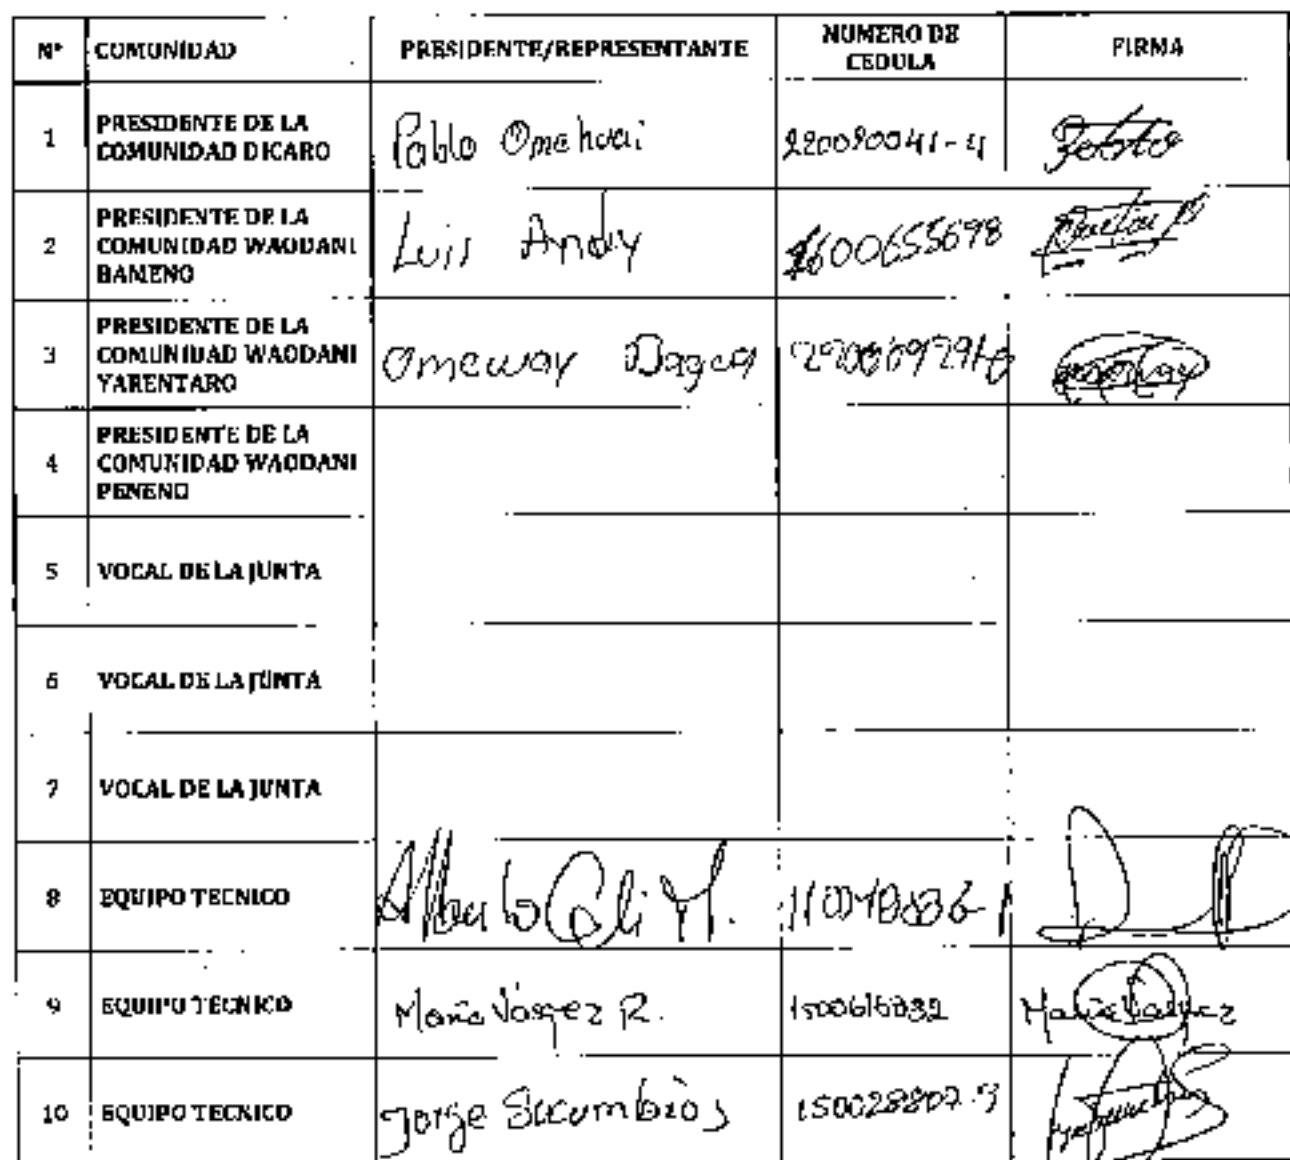 Nº COMUNIDAD PRESIDENTE/REPRESENTANTE NUMERO DE CEDULA FIRMA
1 PRESIDENTE DE LA COMUNIDAD DICARO Pablo Omehuai 220090041-4
2 PRESIDENTE DE LA COMUNIDAD WAODANI BAMENO Luis Andy 1600655698
3 PRESIDENTE DE LA COMUNIDAD WAODANI YARENTARO Omeway
4 PRESIDENTE DE LA COMUNIDAD WAODANI PENENO
5 VOCAL DE LA JUNTA
6 VOCAL DE LA JUNTA
7 VOCAL DE LA JUNTA
8 EQUIPO TECNICO Alberto
9 EQUIPO TECNICO María Vásqez R.
10 EQUIPO TECNICO Jorge Sucumbios 150028807-9